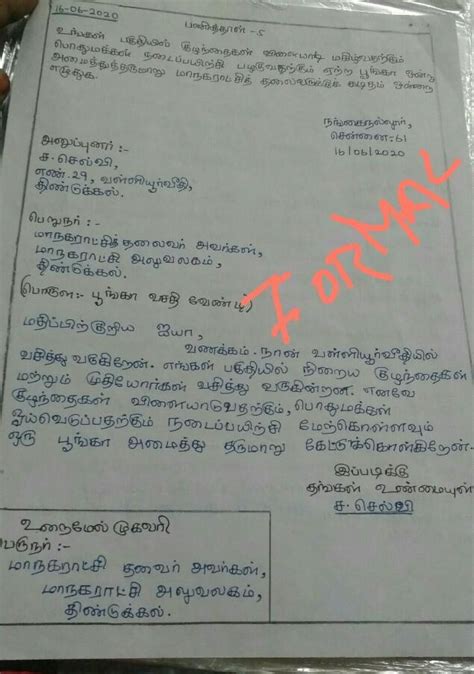 16-06-2020
பணித்தாள் - 5
உங்கள் பகுதியில் குழந்தைகள் விளையாடி மகிழ்வதற்கும்
பொதுமக்கள் நடைப்பயிற்சி பழகுவதற்கும் ஏற்ற பூங்கா ஒன்று
அமைத்துத்தருமாறு மாநகராட்சித் தலைவருக்குக் கடிதம் ஒன்றை
எழுதுக.
நங்கைநல்லூர்,
சென்னை-61
16/06/2020
அனுப்புனர் :-
ச. செல்வி,
எண்.29, வள்ளியூர்வீதி,
திண்டுக்கல்.
பெறுநர் :-
மாநகராட்சித்தலைவர் அவர்கள்,
மாநகராட்சி அலுவலகம்,
திண்டுக்கல்.
(பொருள் :- பூங்கா வசதி வேண்டி)
மதிப்பிற்குரிய ஐயா,
வணக்கம். நான் வள்ளியூர்வீதியில்
வசித்து வருகிறேன். எங்கள் பகுதியில் நிறைய குழந்தைகள்
மற்றும் முதியோர்கள் வசித்து வருகின்றன. எனவே
குழந்தைகள் விளையாடுவதற்கும், பொதுமக்கள்
ஓய்வெடுப்பதற்கும் நடைப்பயிற்சி மேற்கொள்ளவும்
ஒரு பூங்கா அமைத்து தருமாறு கேட்டுக்கொள்கிறேன்.
இப்படிக்கு
தங்கள் உண்மையுள்
ச. செல்வி
உறைமேல் முகவரி
பெருநர் :-
மாநகராட்சி தலைவர் அவர்கள்,
மாநகராட்சி அலுவலகம்,
திண்டுக்கல்.
FORMAL